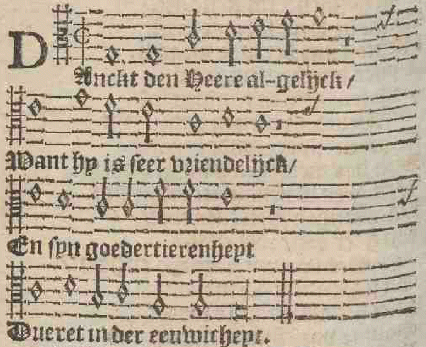 DAnckt den Heere al-gelijck/
Want hy is seer vriendelijck/
En syn goedertierenheyt
Dueret in der eeuwicheyt.